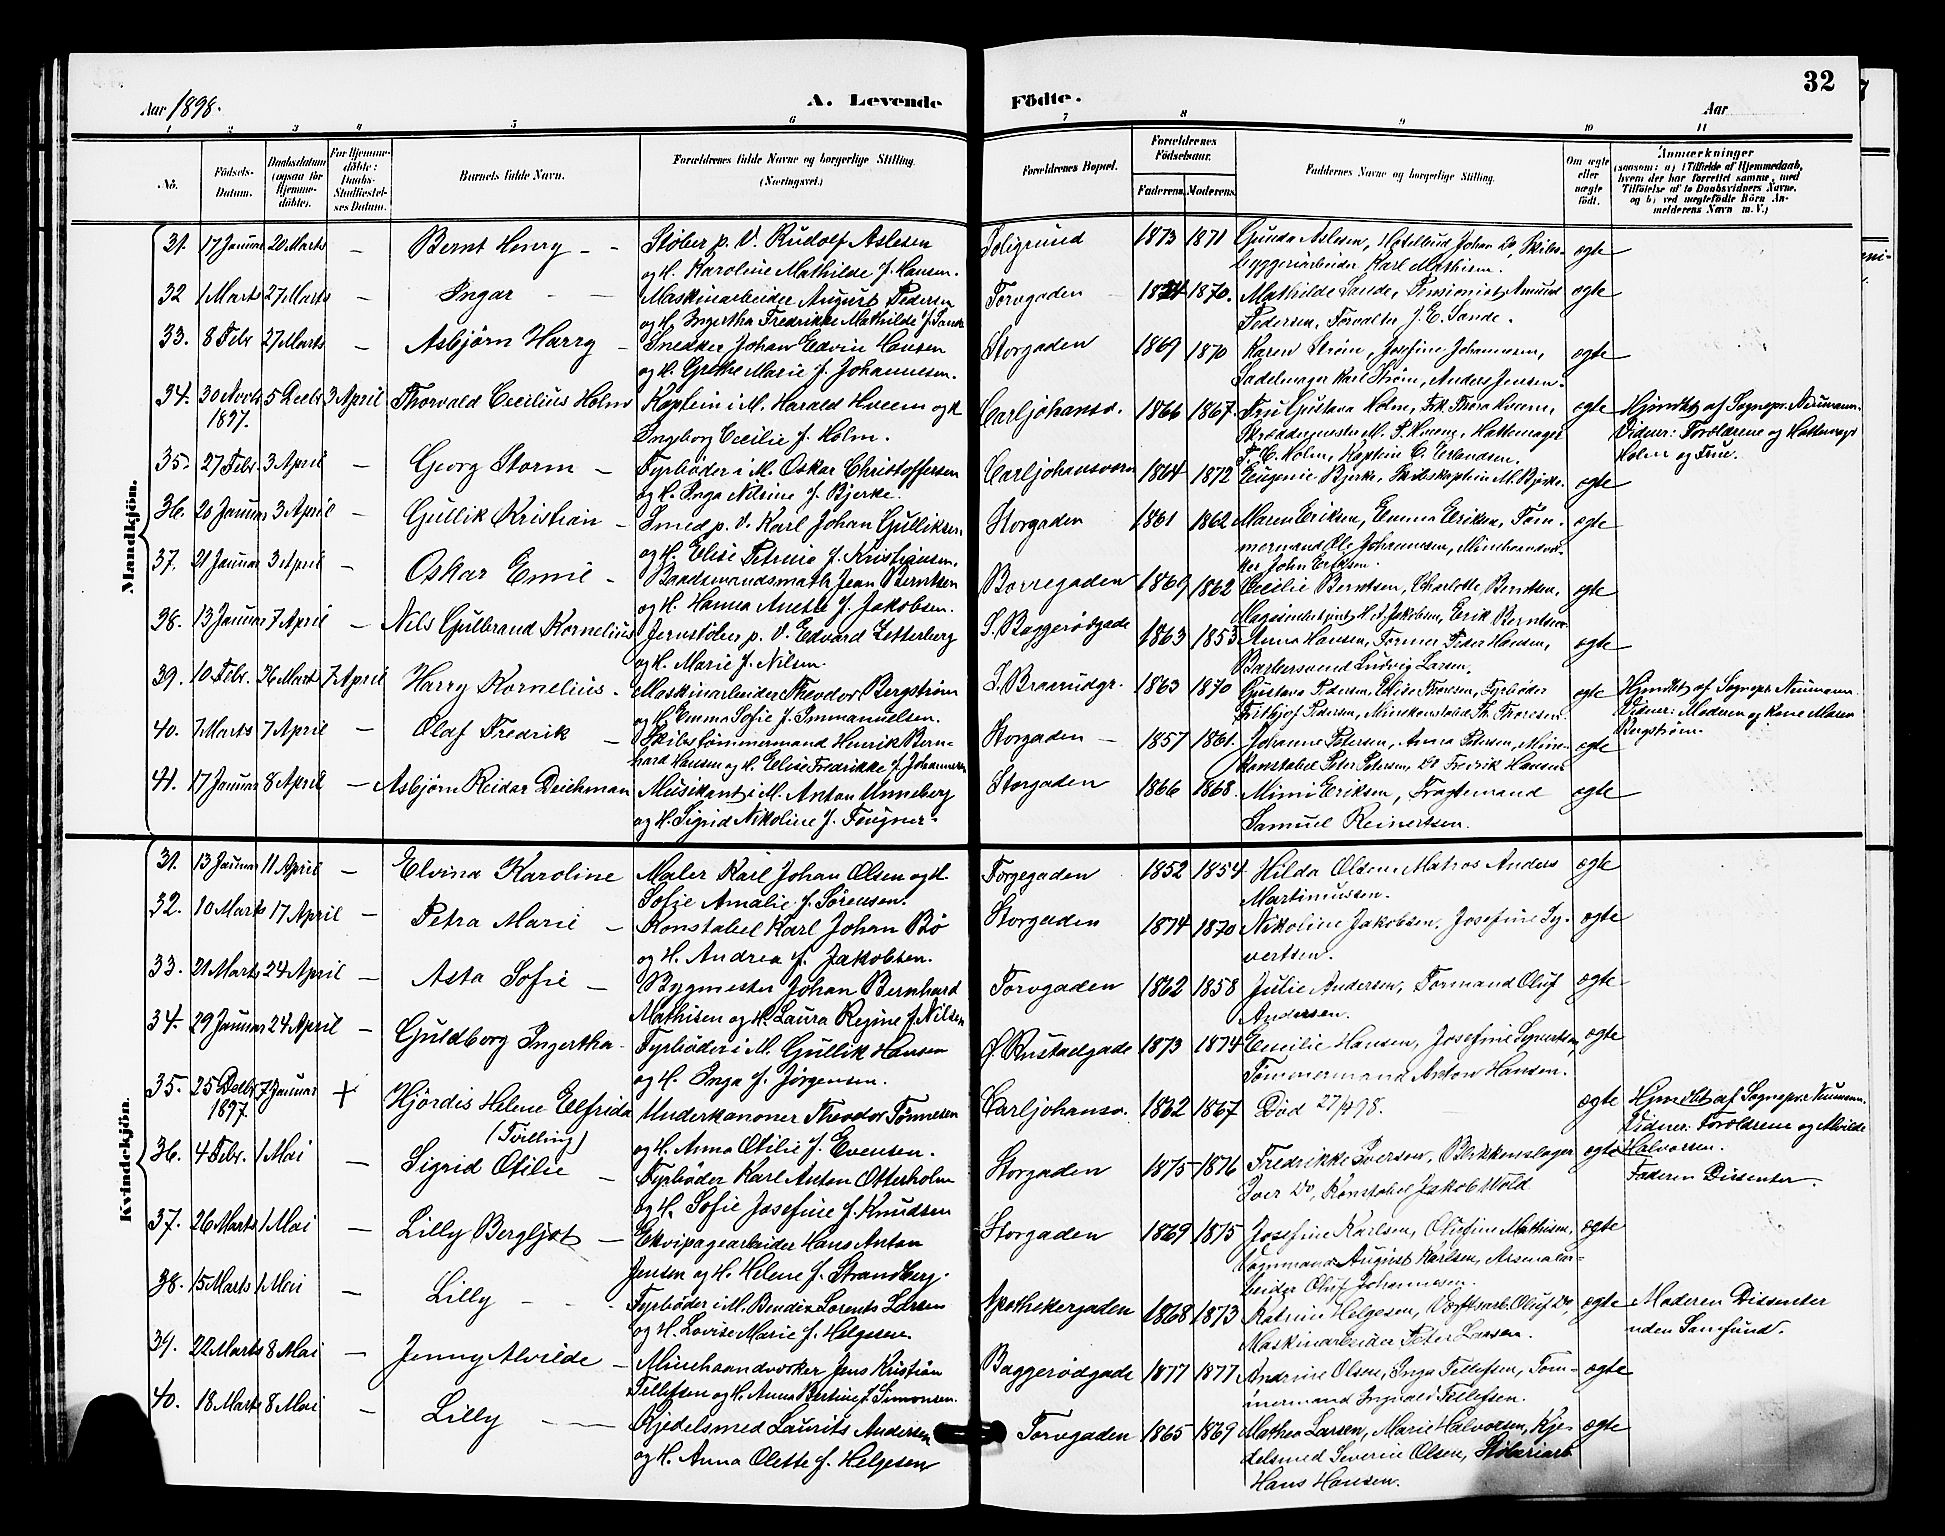 Aar 1898.
A. Levende
Födte.
Aar
32
1 2 3 4 5 6 7 8 9 10 11
No. Födsels-Datum. Daabsdatum (ogsaa för Hjemme-döbte). For Hjemme-döbte: Daabs-Stadfæstel-ses Datum. Barnets fulde Navn. Forældrenes fulde Navne og borgerlige Stilling. (Næringsvei.) Forældrenes Bopæl. Forældrenes Födselsaar. Faderens. Moderens. Faddernes Navne og borgerlige Stilling. Om ægte eller uægte födt. Anmærkninger (saasom: a) i Tilfælde af Hjemmedaab, hvem der har forrettet samme, med Tilföielse af to Daabsvidners Navne, og b) ved uægtefödte Börn An-melderens Navn m. V.)
Mandkjön.
31. 17 Januar 20 Marts — Bernt Henry — Støber p. V. Rudolf Aslesen Toligrund 1873 1871 Gunda Aslesen, Hotelbud Johan Do, Skibs- ægte
og H. Karoline Mathilde f. Hansen. byggeriarbeider Karl Mathisen.
32 1 Marts 27 Marts — Ingar — Maskinarbeider August Pedersen Torvgaden 1874 1870. Mathilde Sande, Pensionist Amund ægte
og H. Ingertha Fredrikke Mathilde f. Sande Pedersen, Forvalter J. E. Sande.
33. 8 Febr 27 Marts — Asbjørn Harry — Snedker Johan Edvin Hansen Storgaden 1869 1870 Karen Strøm, Josefine Johannesen, ægte
og H. Grethe Marie f. Johannesen. Sadelmager Karl Strøm, Anders Jensen.
34. 30 Novb 1897. 5 Decbr 3 April Thorvald Cecilius Holm Kaptein i M. Harald Hveem og H. Carljohansv. 1866 1867. Fru Gustava Holm, Frk. Thora Hveem, ægte Hjmdbt af Sognepr. Neumann.
Ingborg Cecilie f. Holm. Skræddermester M. P. Hveem, Hattemager Vidner: Forældrene og Hattemager
T. C. Holm, Kaptein C. Erlandsen. Holm og Frue.
35. 27 Febr. 3 April — Georg Storm — Fyrbøder i M. Oskar Christoffersen Carljohansværn 1864 1872 Eugenie Bjerke, Skibskaptein M. Bjerke. ægte
og H. Inga Nilsine f. Bjerke.
36. 20 Januar 3 April — Gullik Kristian — Smed p. V. Karl Johan Gulliksen Storgaden 1861 1862 Maren Eriksen, Emma Eriksen, Tøm- ægte
og H. Elise Petrine f. Kristiansen. mermand Ole Johannesen, Minehaandvær-
ker John Eriksen.
37. 21 Januar 3 April — Oskar Emil — Baadsmandsmath Jean Berntsen Borregaden 1860 1862 Cecilie Berntsen, Charlotte Berntsen, ægte
og H. Hanna Anette f. Jakobsen. H. A. Jakobsen, Erik Berntsen
38. 13 Januar 7 April — Nils Gulbrand Kornelius Jernstøber p. V. Edvard Zetterberg S. Baggerødgade 1863 1853 Anna Hansen, Former Peder Hansen, ægte
og H. Marie f. Nilsen. Barbersvend Ludvig Larsen.
39. 10 Febr. 26 Mart 7 April Harry Kornelius. Maskinarbeider Theodor Bergstrøm L. Braarudgr. 1863 1870 Gustava Pedersen, Elise Thoresen, Fyrbøder ægte Hjmdbt af Sognepr Neumann
og H. Emma Sofie f. Immanuelsen. Fritjof Pedersen, Minekonstabel Th. Thoresen. Vidner: Moderen og Kone Maren
Bergstrøm.
40. 7 Marts 7 April — Olaf Fredrik — Skibstømmermand Henrik Bern- Storgaden — 1857 1861. Johanne Petersen, Anna Petersen, Mine- ægte
hard Hansen og H. Elise Fredrikke f. Johannesen konstabel Peter Petersen, Do Fredrik Hansen
41. 17 Januar 8 April — Asbjørn Reidar Deichman Musikant i M. Anton Unneberg Storgaden 1866 1868. Mimi Eriksen, Fragtemand ægte
og H. Sigrid Nikoline f. Fougner. Samuel Reinertsen.
Kvindekjön.
31. 13 Januar 11 April — Elvina Karoline Maler Karl Johan Olsen og H. Torgegaden 1852 1854 Hilda Olsen, Matros Anders ægte
Sofie Amalie f. Sørensen. Martinussen.
32. 10 Marts 17 April — Petra Marie — Konstabel Karl Johan Bø Storgaden 1874 1870 Nikoline Jakobsen, Josefine Sy- ægte
og H. Andrea f. Jakobsen. vertsen.
33. 21 Marts 24 April — Asta Sofie — Bygmester Johan Bernhard Torvgaden 1862 1858 Julie Andersen, Formand Oluf ægte
Mathisen og H. Laura Regine f. Nilsen Andersen.
34. 29 Januar 24 April — Guldborg Ingertha. Fyrbøder i M. Gullik Hansen Ø. Rustadgade 1873 1874 Cecilie Hansen, Josefine Syvertsen, ægte
og H. Inga f. Jørgensen. Tømmermand Anton Hansen.
35. 25 Decbr 1897. 7 Januar + Hjördis Helene Elfrida (Tvilling) Underkanoner Theodor Tønnesen Carljohansv. 1862 1867 Død 27/4 98. ægte Hjmdbt af Sognepr. Neumann.
og H. Anna Otilie f. Evensen. Vidner: Forældrene og Alvilde
Halvorsen.
Faderen Dissenter.
36. 4 Febr. 1 Mai — Sigrid Otilie — Fyrbøder Karl Anton Otterholm Storgaden 1875 1876 Fredrikke Iversen, Blikkenslager ægte
og H. Sofie Josefine f. Knudsen Iver Do, Konstabel Jakob Wold
37. 26 Marts 1 Mai — Lilly Bergljot — Ekvipagearbeider Hans Anton Storgaden 1869 1875 Josefine Karlsen, Olufine Mathisen, ægte
Jensen og H. Helene f. Strandberg. Vognmand August Karlsen, Arsenalar-
beider Oluf Johannesen.
38. 15 Marts 1 Mai — Lilly — Fyrbøder i M. Bendix Lorents Larsen Apothekergaden 1868 1873 Katrine Helgesen, Værftsarb. Oluf Do, ægte Moderen Dissenter
og H. Lovise Marie f. Helgesen Maskinarbeider Peter Larsen. uden Samfund.
39. 22 Marts 8 Mai — Jenny Alvilde — Minehaandværker Jens Kristian Baggerødgade 1877 1877 Andrine Olsen, Inga Tellefsen, Tøm- ægte
Tellefsen og H. Anna Bertine f. Simonsen. mermand Ingvald Tellefsen.
40. 18 Marts 8 Mai — Lilly — Kjedelsmed Laurits Andersen Torvgaden 1865 1869 Mathea Larsen, Marie Halvorsen, Kje- ægte
og H. Anna Olette f. Helgesen delsmed Severin Olsen, Støberiarb.
Hans Hansen.